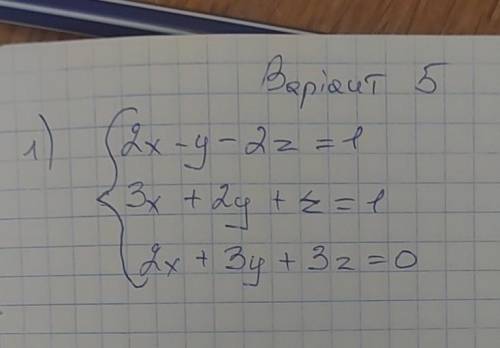 Варіант 5
1) 2x - y - 2z = 1
3x + 2y + z = 1
2x + 3y + 3z = 0